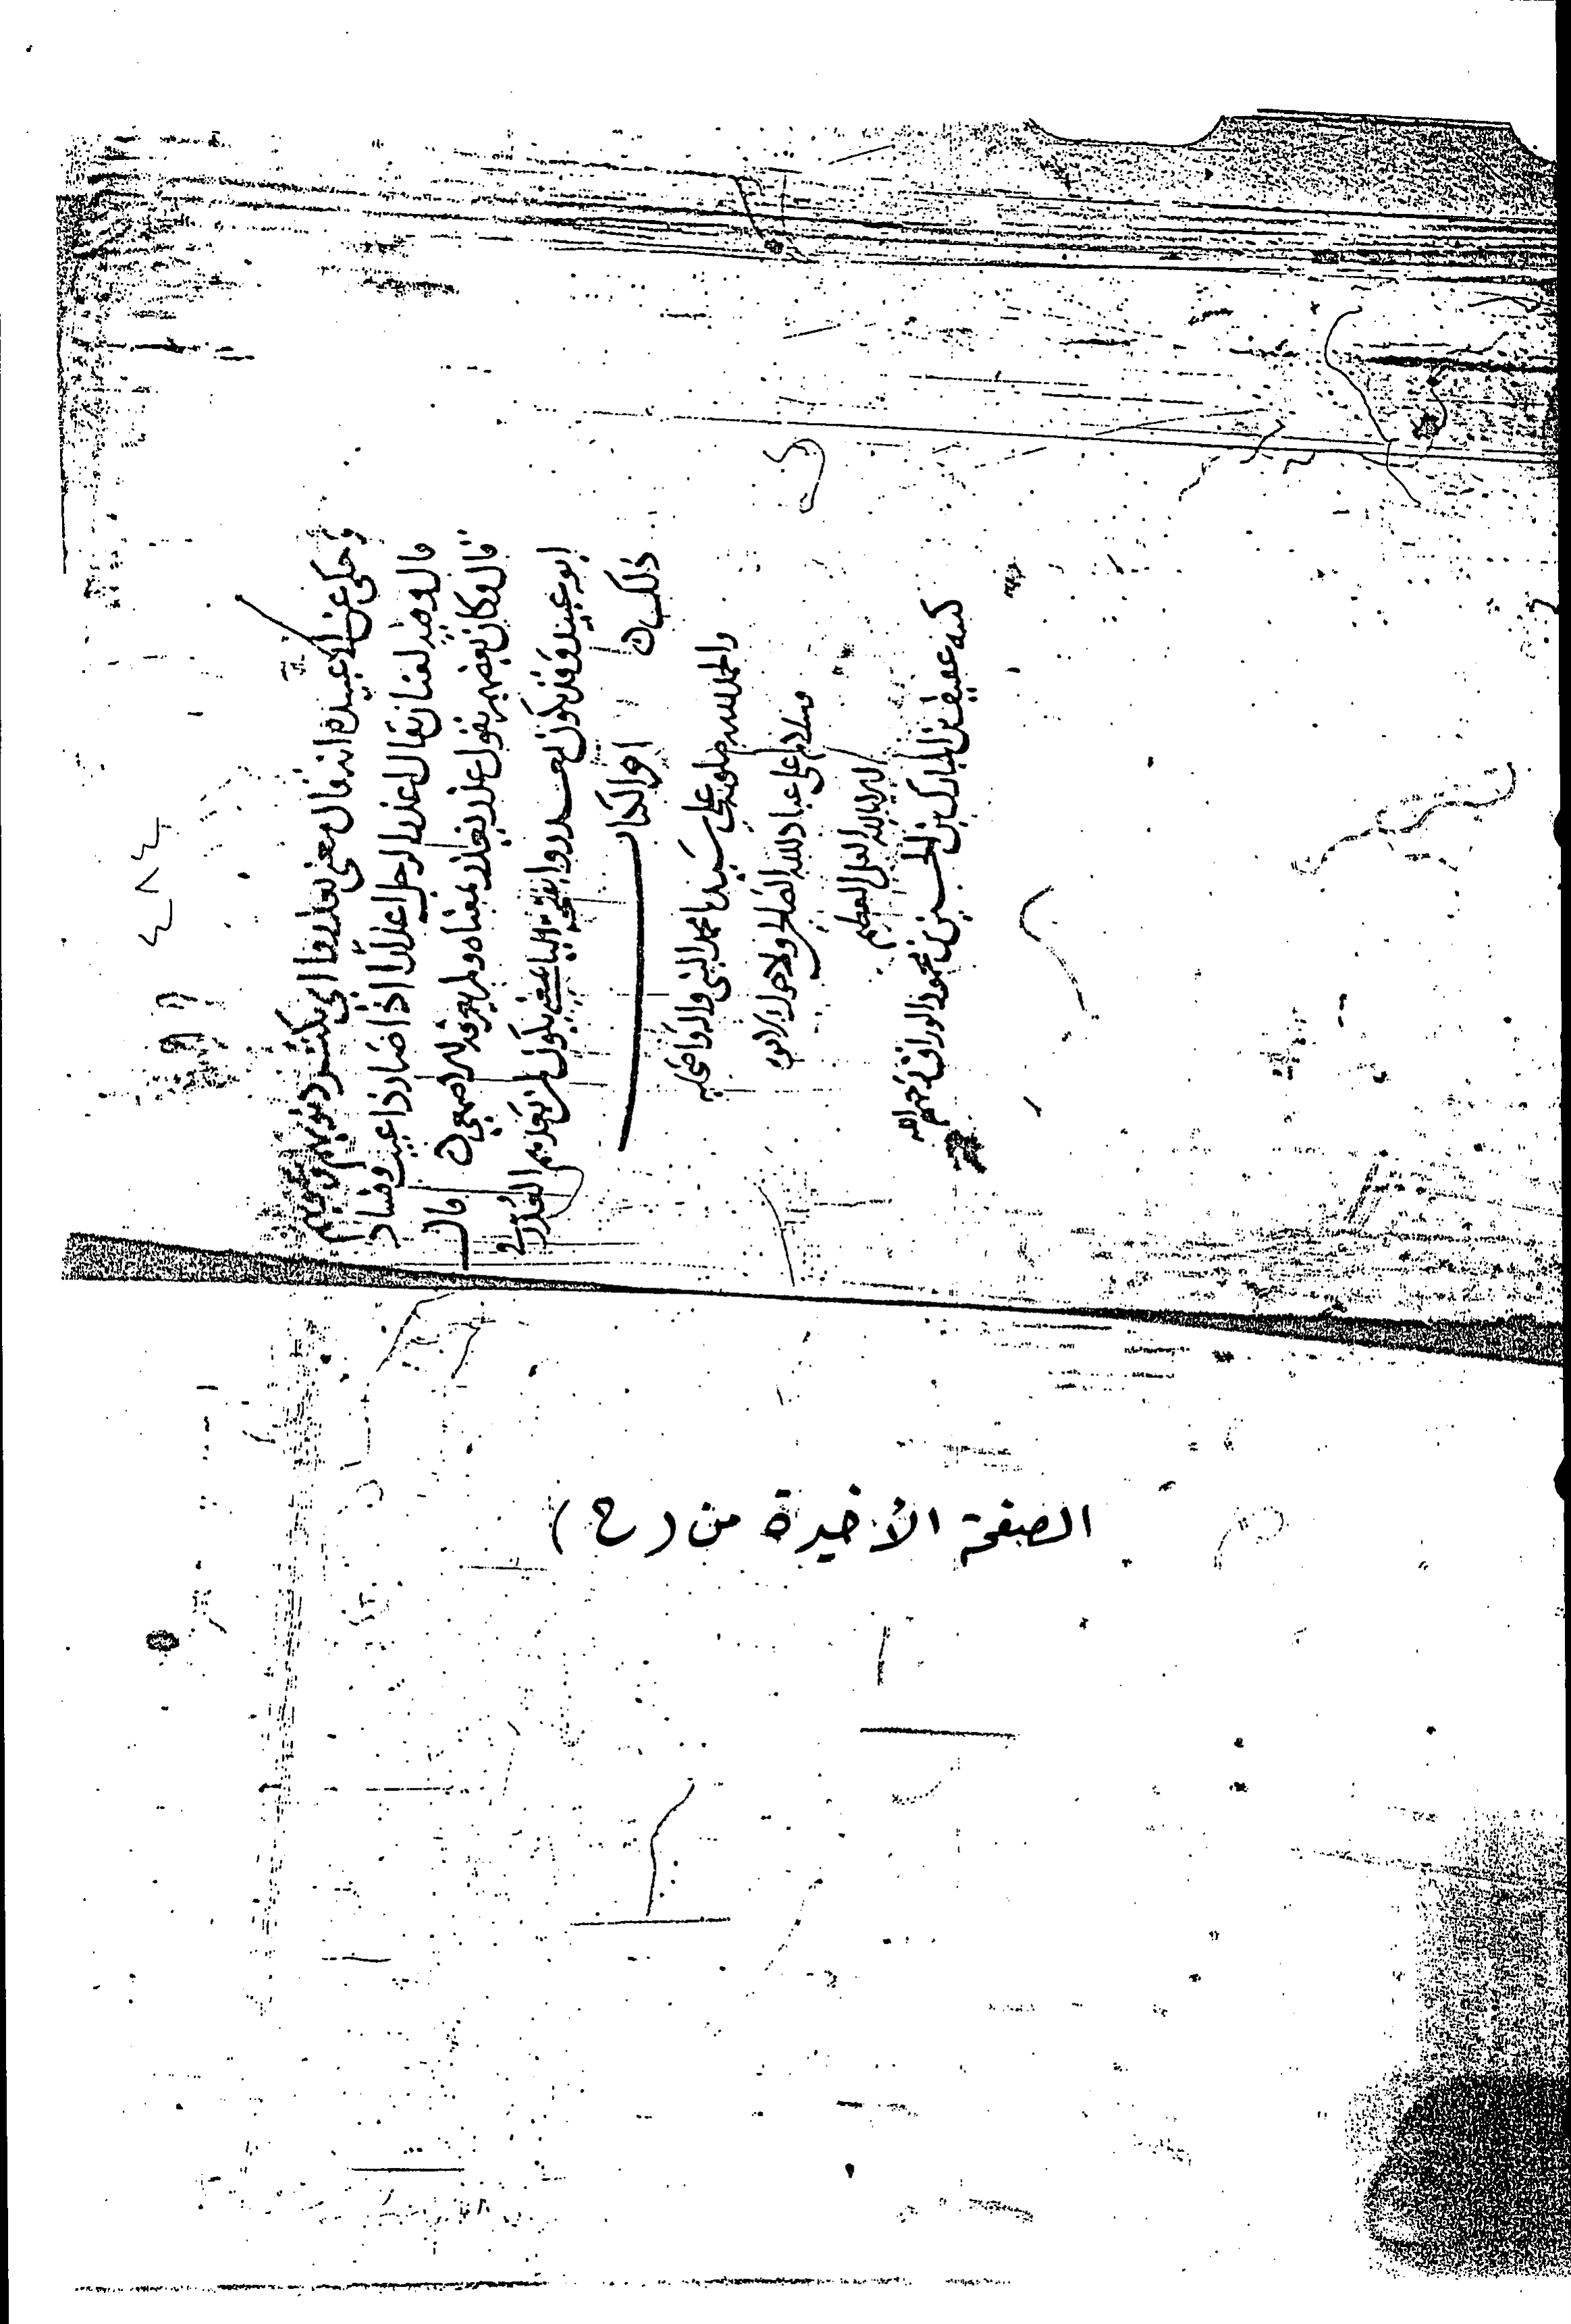 ٤٨٤
وحكى عن ابي عبيدة انه قال معنى يعذروا اي تكثر ذنوبهم وعيوبهم
قال وفيه لغتان يقال اعذر الرجل اعذارا اذا صار ذا عيب وفساد
قال وكان بعضهم يقول عذر يعذر بمعناه ولم يعرفه الاصمعي قال
ابو عبيد وقد يكون يعذروا بفتح اليا بمعنى يكون لمن يعذبهم العذر في
ذلك
اخر الكتاب
والحمد لله وصلوته على سيدنا محمد النبي واله واصحابه
وسلام على عباد الله الصالحين ولا حول ولا قوه
الا بالله العلي العظيم
كتبه عفيف بن المبارك بن الحسين بن محمود الوراق رحمهم الله
الصفحة الأخيرة من (ح)